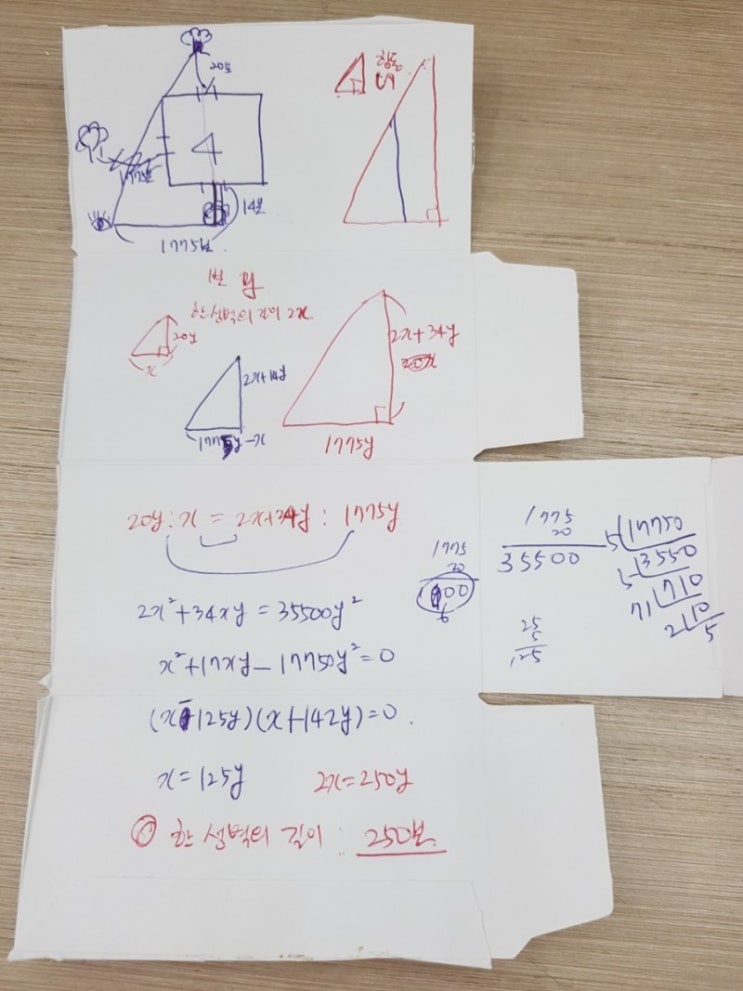 20보
1775보
14보
1775보
1보 y
한 성벽의 길이 2x
20y
x
2x+14y
1775y-x
2x+34y
1775y
20y : x = 2x+34y : 1775y
2x²+34xy = 35500y²
x²+17xy-17750y²=0
(x-125y)(x+142y)=0.
x=125y 2x=250y
한 성벽의 길이 : 250보.
1775
20
00
6
1775
20
35500
5 17750
5 3550
71 710
2 10
5
25
5
125